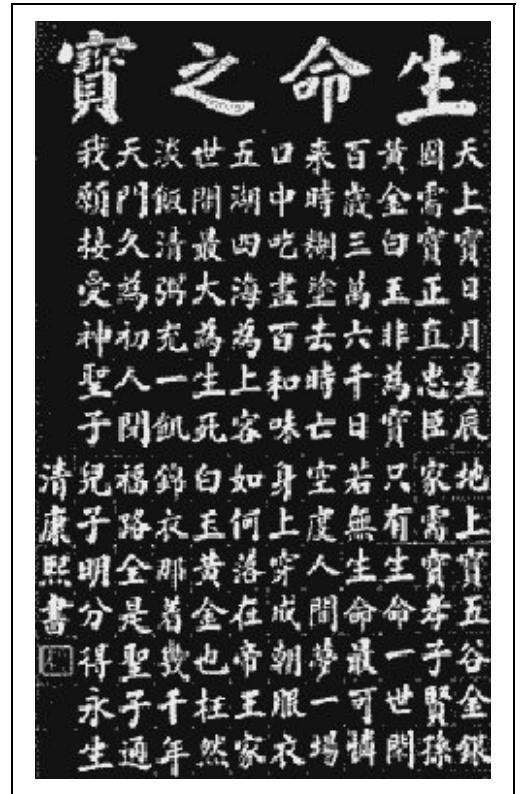 生命之寶
天上寶日月星辰地上寶五谷金銀
國需寶正直忠臣家需寶孝子賢孫
黃金白玉非為寶只有生命一世閑
百歲三萬六千日若無生命最可憐
來時糊塗去時亡空度人間夢一場
口中吃盡百和味身上穿成朝服衣
五湖四海為上客如何落在帝王家
世間最大為生死白玉黃金也枉然
淡飯清粥充一飢錦衣那着幾千年
天門久為初人閉福路全是聖子通
我願接受神聖子兒子明分得永生
清康熙書